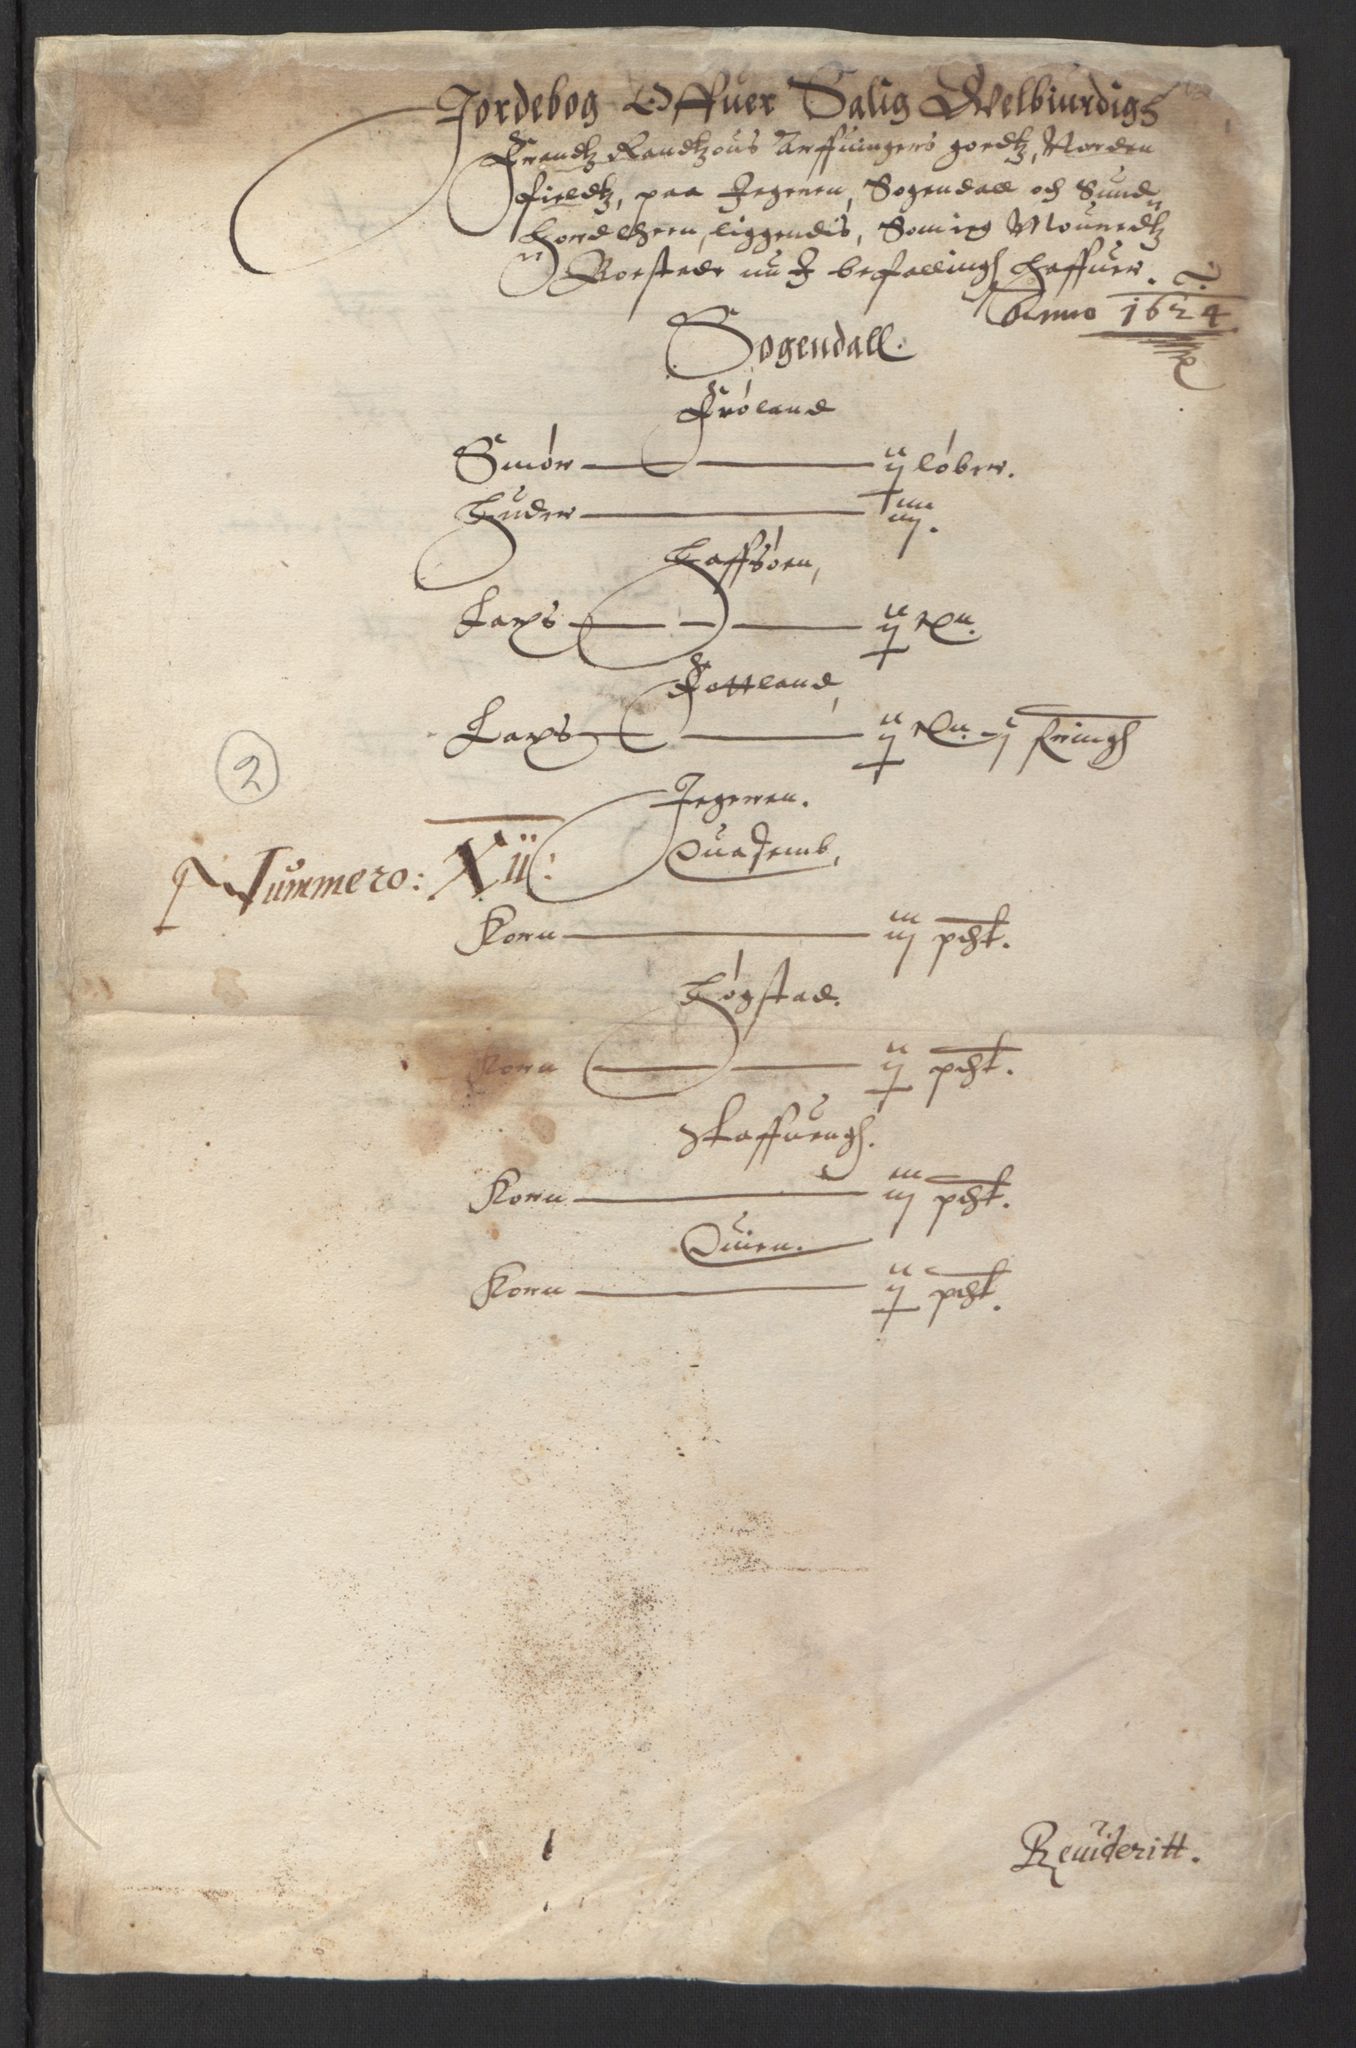 Jordebog Offuer Salig Welbiurdigs
Frandtz Randtzous Arffuingers godtz, Norden
fieldtz, paa Jegeren, Sogendall och Sund
hordlehen, liggendis, Som ieg Mouridtz
Boestedr nu J befallingh haffuer.
Anno 1624
Sogendall.
Frøland
Smør — ij løber.
Huder — iiij.
Haffsøen,
Laxs — ij
Fottland,
Laxs — ij
Jegeren.
2
Nummero: Xii:
Korn — iij pdt.
Høgstad.
Korn — ij pdt.
Skaffuengh.
Korn — iij pdt.
Quien.
Korn — ij pdt.
Reuideritt.